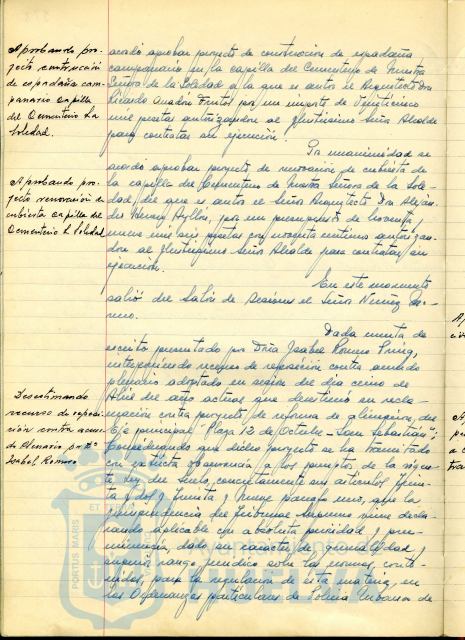 Aprobando pro-
yecto construcción
de espadaña cam-
panario capilla
del Cementerio La
Soledad.
acordó aprobar proyecto de construcción de espadaña
campanario en la capilla del Cementerio de Nuestra
Señora de la Soledad de la que es autor el Arquitecto Don
Ricardo Anadón Frutos por un importe de Veinticinco
mil pesetas autorizándose al Ilustrísimo Señor Alcalde
para contratar su ejecución.
Aprobando pro-
yecto renovación de
cubierta capilla del
Cementerio La Soledad
Por unanimidad se
acordó aprobar proyecto de renovación de cubierta de
la capilla del Cementerio de Nuestra Señora de la Sole-
dad, del que es autor el Señor Arquitecto Don Alejan-
dro Herrero Ayllón, por un presupuesto de noventa y
nueve mil seis pesetas con noventa céntimos autorizan-
dose al Ilustrísimo Señor Alcalde para contratar su
ejecución.
En este momento
salió del Salón de Sesiones el Señor Nuñez Mo-
reno.
Desestimando
recurso de reposi-
ción contra acuer-
do Plenario, por Dª
Isabel Romero
Dada cuenta de
escrito presentado por Doña Isabel Romero
interponiendo recurso de reposición contra acuerdo
plenario adoptado en sesión del día cinco de
Abril del año actual que desestimó su recla-
mación contra proyecto de reforma de alineación, del
Eje principal "Plaza 12 de Octubre - San Sebastián";
Considerando que dicho proyecto se ha tramitado
con estricta observancia a los preceptos de la vigen-
te Ley del Suelo, concretamente sus artículos trein-
ta y dos y treinta y nueve párrafo uno, que la
jurisprudencia del Tribunal Supremo viene decla-
rando aplicable con absoluta prioridad y pree-
minencia, dado su carácter de generalidad y
superior rango jurídico sobre las normas, conte-
nidas, para la regulación de esta materia, en
las Ordenanzas particulares de Policía Urbana de
PORTUS MARIS